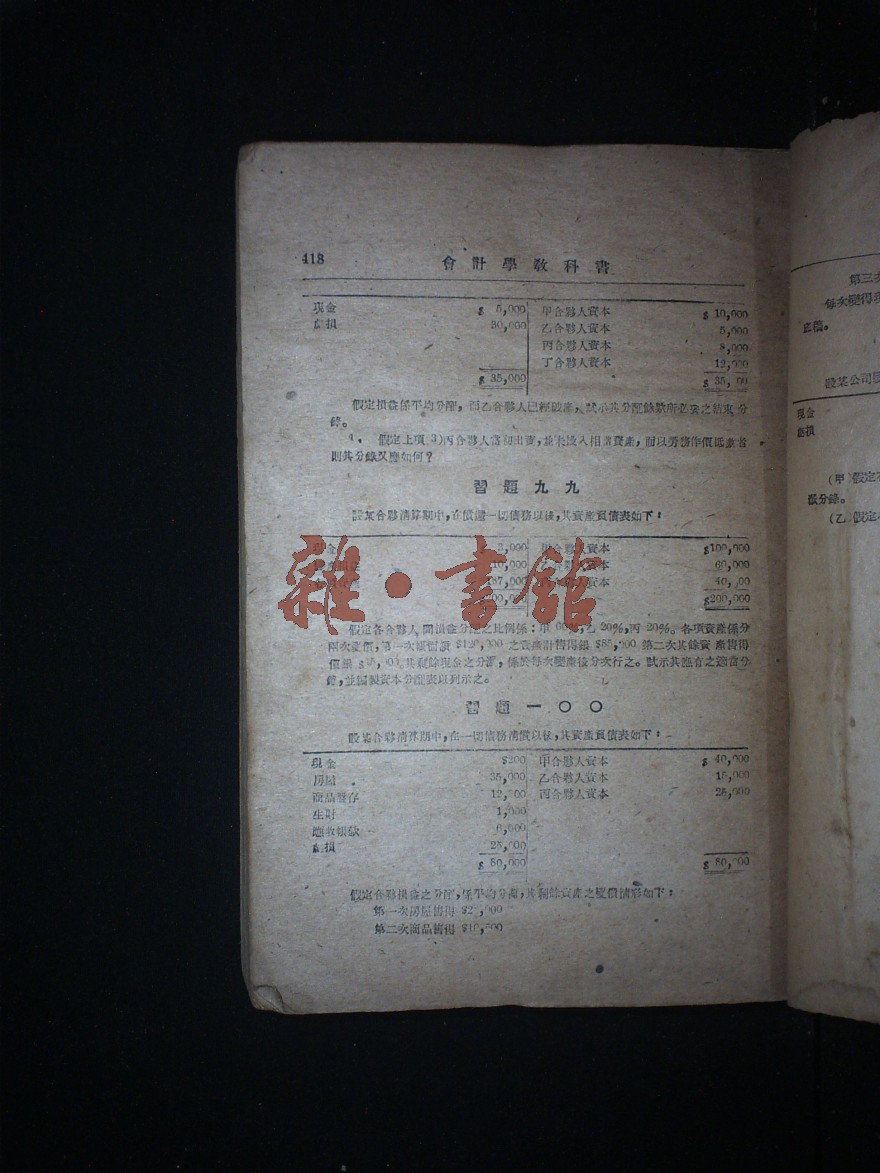 418 會計學教科書
現金 $ 5,000 甲合夥人資本 $ 10,000
虧損 30,000 乙合夥人資本 5,000
丙合夥人資本 8,000
丁合夥人資本 12,000
$ 35,000 $ 35, 00
假定損益係平均分配,而乙合夥人已經破產,試示其分配餘款所必要之結束分
錄。
4. 假定上項(3)丙合夥人當初出資,並未投入相當資產,而以勞務作價抵充者
則其分錄又應如何?
習題九九
設某合夥清算期中,在償還一切債務以後,其資產負債表如下:
現金 $ 3,000 甲合夥人資本 $100,000
10,000 合夥人資本 60,000
87,000 合夥人資本 40, 00
$200,000
假定各合夥人間損益分配之比例係:甲 60%,乙 20%,丙 20%。各項資產係分
兩次變價,第一次帳面 $120,000 之資產計售得 $85,000 第二次其餘資產售得
價 其剩餘現金之分派,係於每次變產後分次行之。試示其應有之適當分
錄,並編製資本分配表以列示之。
習題一〇〇
設某合夥清算期中,在一切債務清償以後,其資產負債表如下:
現金 $200 甲合夥人資本 $ 40,000
房屋 35,000 乙合夥人資本 15,000
商品盤存 丙合夥人資本 25,000
生財 1,000
應收帳款
虧損 25, 00
$ 80,000 $ 80, 00
假定合夥損益之分配,係平均分派,其剩餘資產之變價情形如下:
第一次房屋售得
第二次商品售得
第三次
每次變得現
底稿。
設某公司
現金
虧損
(甲)假定
(乙)假定
張分錄。
雜·書館